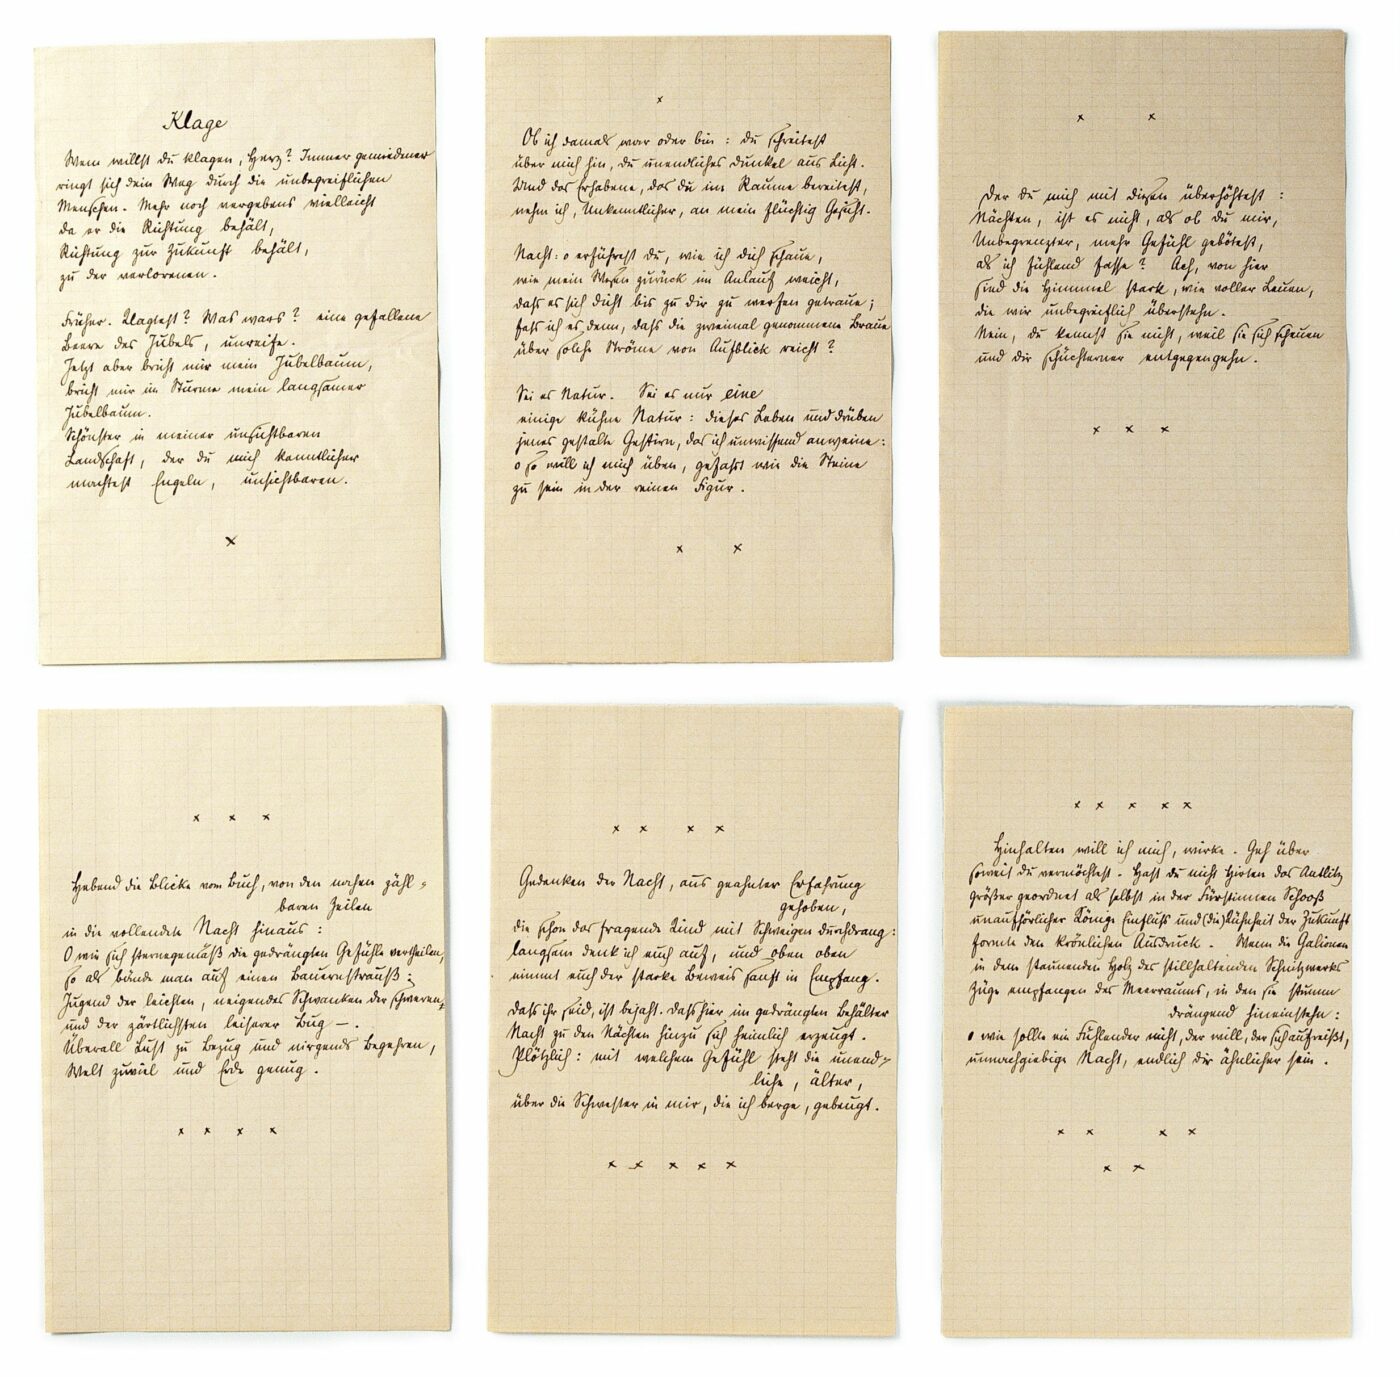 Klage
Wem willst du klagen, Herz? Immer gemiedener
ringt sich dein Weg durch die unbegreiflichen
Menschen. Mehr noch vergebens vielleicht
da er die Richtung behält,
Richtung zur Zukunft behält,
zu der verlorenen.
Früher. Klagtest? Was wars? eine gefallene
Beere des Jubels, unreife.
Jetzt aber bricht mir mein Jubelbaum,
bricht mir im Sturme mein langsamer
Jubelbaum.
Schönster in meiner unsichtbaren
Landschaft, der du mich kenntlicher
machtest Engeln, unsichtbaren.
x
x
Ob ich damals war oder bin: du schreitest
über mich hin, du unendliches Dunkel aus Licht.
Und das Erhabene, das du im Raume bereitest,
nehm ich, Unkenntlicher, an mein flüchtig Gesicht.
Nacht: o erführest du, wie ich dich schaue,
wie mein Wesen zurück im Anlauf weicht,
dass es sich dicht bis zu dir zu werfen getraue;
fass ich es denn, dass die zweimal genommene Braue
über solche Ströme von Aufblick reicht?
Sei es Natur. Sei es nur eine
einige kühne Natur: dieses Leben und drüben
jenes gestalte Gestirn, das ich unwissend anweine:
o so will ich mich üben, gefasst wie die Steine
zu sein in der reinen Figur.
x x
x x
Der du mich mit diesen überhöhtest:
Nächten, ist es nicht, als ob du mir,
Unbegrenzter, mehr Gefühl gebötest,
als ich fühlend fasse? Ach, von hier
sind die Himmel stark, wie voller Leuen,
die wir unbegreiflich überstehn.
Nein, du kennst sie nicht, weil sie sich scheuen
und dir schüchterner entgegengehn.
x x x
x x x
Hebend die Blicke vom Buch, von den nahen zähl-
baren Zeilen
in die vollendete Nacht hinaus:
O wie sich sternegemäß die gedrängten Gefühle vertheilen,
so als bände man auf einen Bauernstrauß:
Jugend der leichten, neigendes Schwanken der schweren,
und der zärtlichsten leiserer Bug —.
Überall Lust zu Bezug und nirgends Begehren,
Welt zuviel und Erde genug.
x x x x
x x x x
Gedenken der Nacht, aus geahnter Erfahrung
gehoben,
die schon das fragende Kind mit Schweigen durchdrang:
langsam denk ich euch auf, und oben oben
nimmt euch der starke Beweis sanft in Empfang.
Dass ihr seid, ist bejaht. Dass hier im gedrängten Behälter
Nacht zu den Nächten hinzu sich heimlich erzeugt.
Plötzlich: mit welchem Gefühl steht die unend-
liche, älter,
über die Schwester in mir, die ich berge, gebeugt.
x x x x x
x x x x x
Hinhalten will ich mich, wirke. Geh über
soweit du vermöchtest. Hast du nicht Hirten das Antlitz
größer geordnet als selbst in der Fürstinnen Schooß
unaufhörlicher Könige Einfluss und (die) Kühnheit der Zukunft
formte den krönlichen Ausdruck. Wenn die Galionen
in dem staunenden Holz des stillhaltenden Schnitzwerks
Züge empfangen des Meerraums, in den sie stumm
drängend hineinstehn:
o wie sollte ein Fühlender nicht, der will, der sich aufreißt,
unnachgiebige Nacht, endlich dir ähnlicher sein.
x x x x
x x